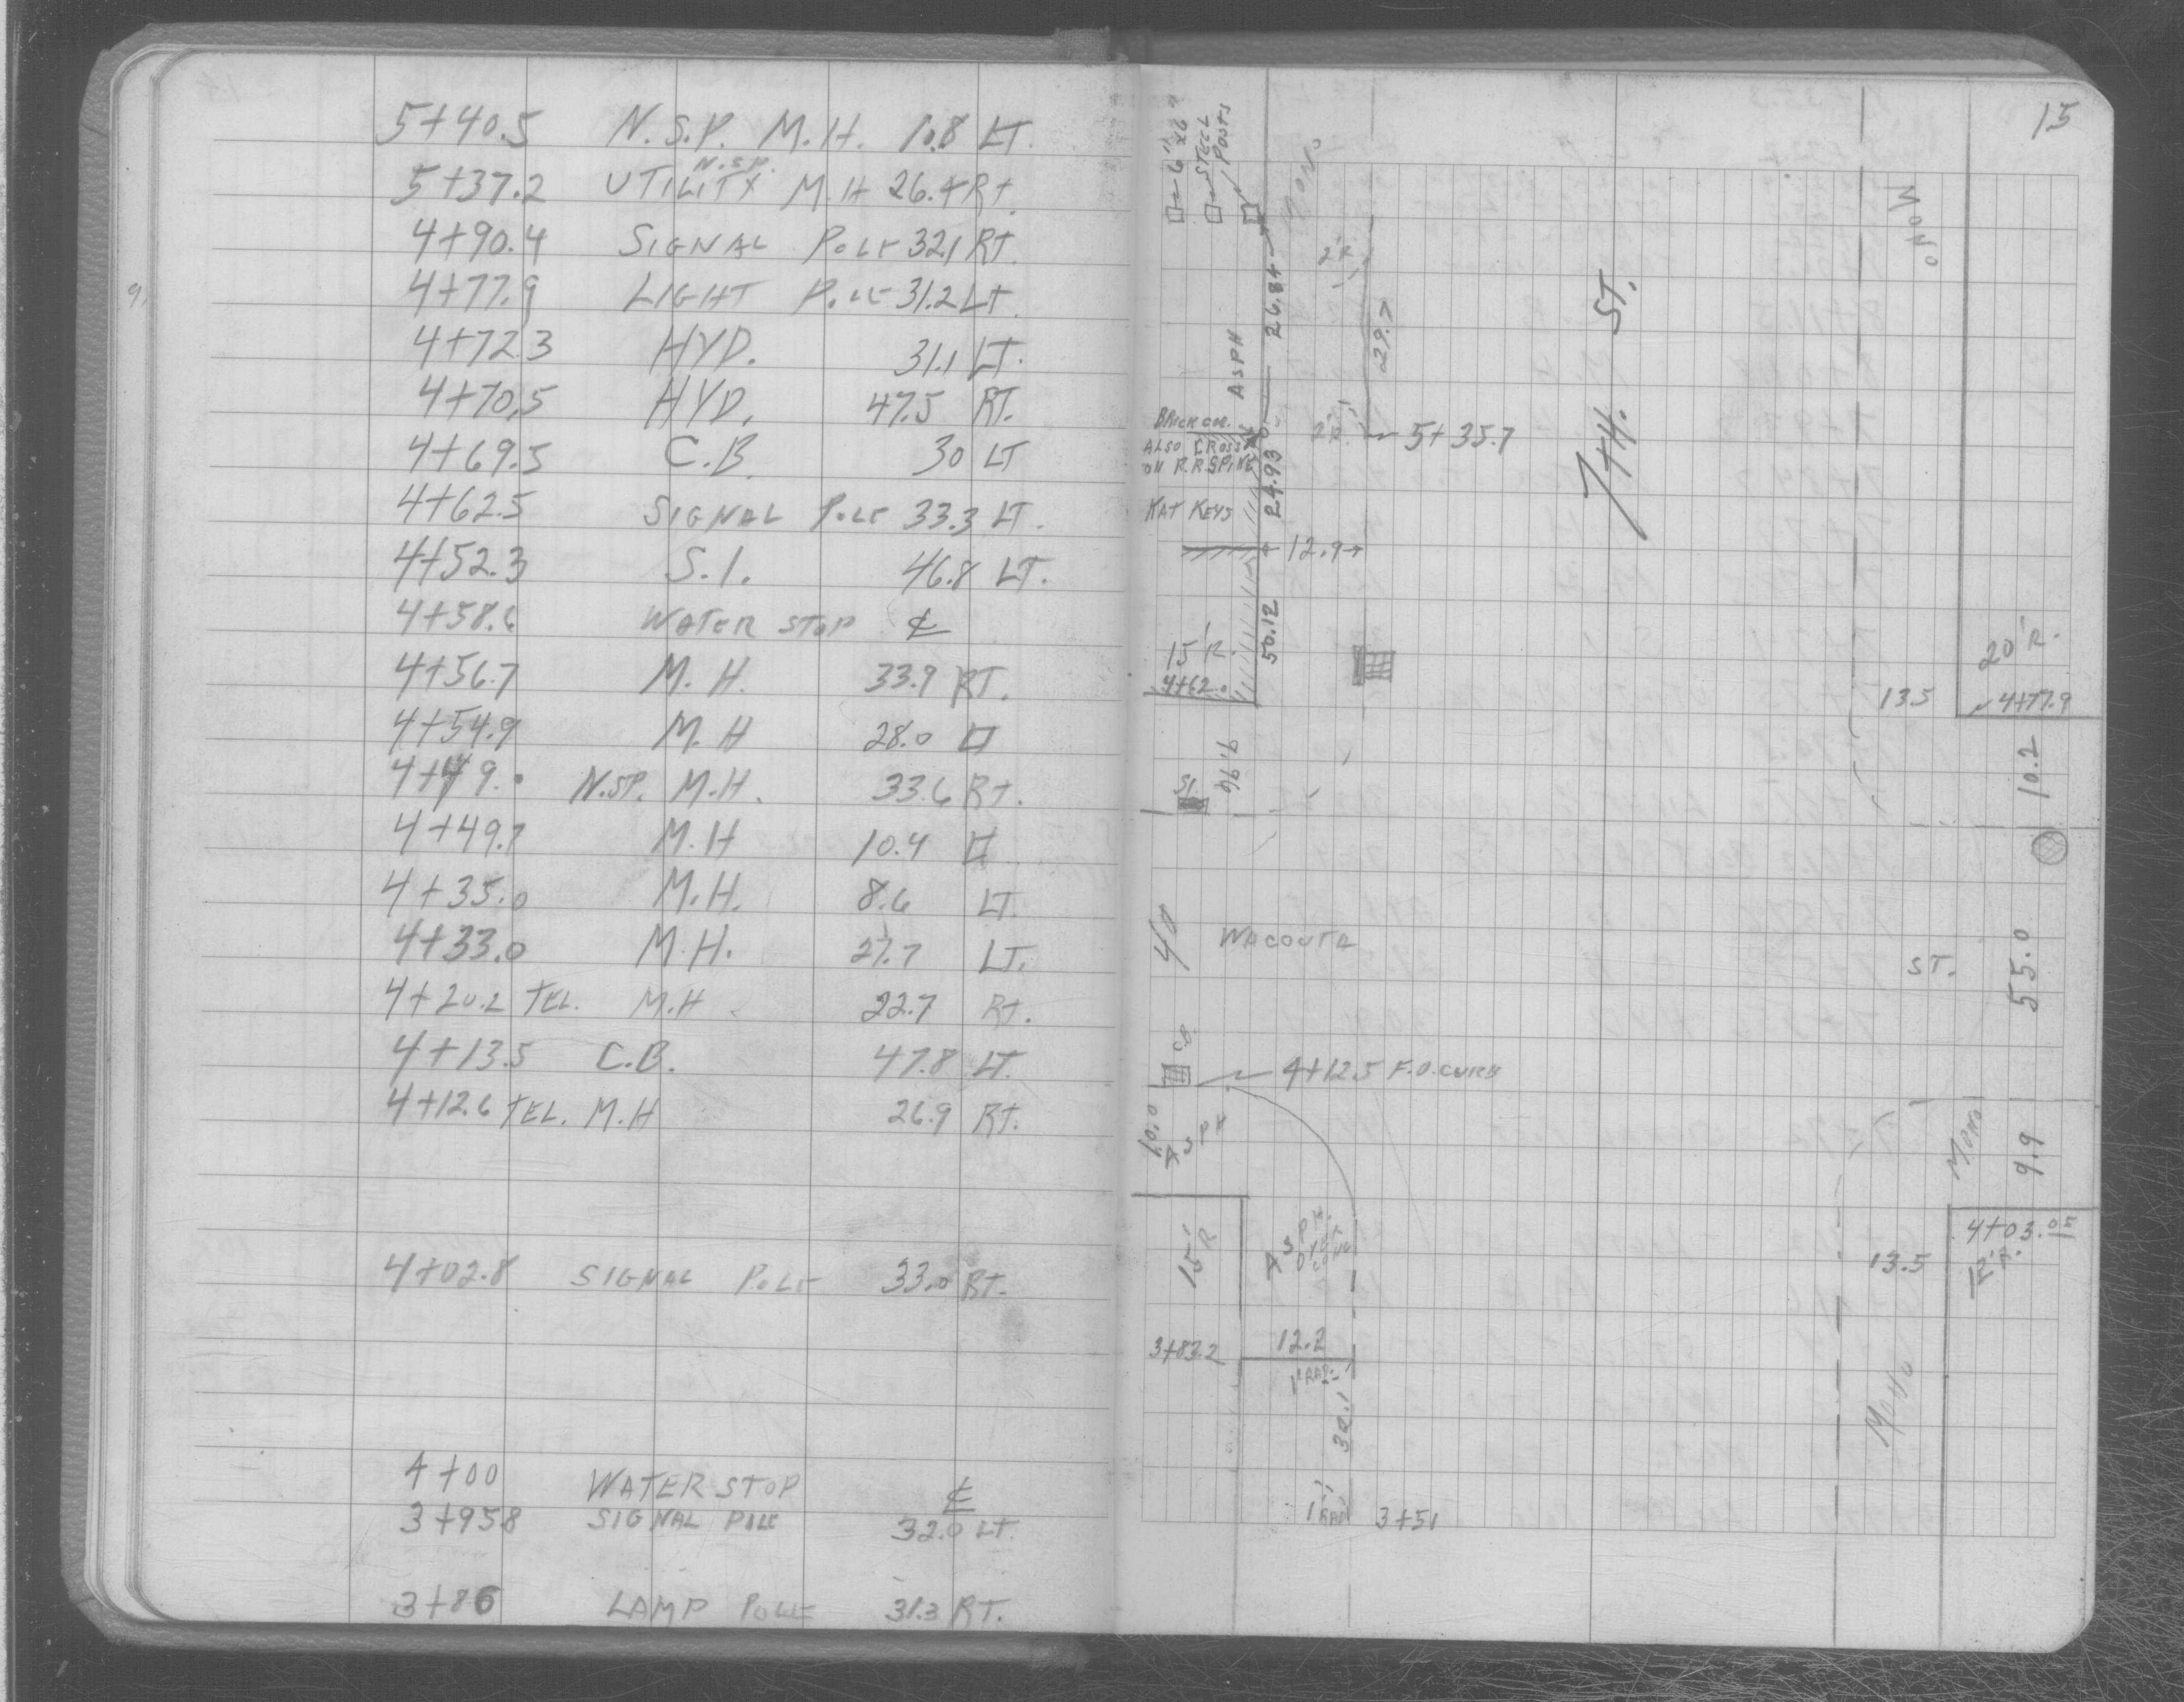 5+40.5 N.S.P. M.H. 10.8 LT.
N.S.P.
5+37.2 UTILITY M.H 26.4 RT.
4+90.4 SIGNAL POLE 32.1 RT.
4+77.9 LIGHT POLE 31.2 LT.
4+72.3 HYD. 31.1 LT.
4+70.5 HYD. 47.5 RT.
4+69.5 C.B. 30 LT
4+62.5 SIGNAL POLE 33.3 LT.
4+52.3 S.I. 46.8 LT.
4+58.6 WATER STOP ℄
4+56.7 M.H. 33.9 RT.
4+54.9 M.H 28.0
4+49.0 N.SP. M.H. 33.6 RT.
4+49.7 M.H 10.4
4+35.0 M.H. 8.6 LT.
4+33.0 M.H. 27.7 LT.
4+20.2 TEL. M.H. 22.7 RT.
4+13.5 C.B. 47.8 LT.
4+12.6 TEL. M.H 26.9 RT.
4+02.8 SIGNAL POLE 33.0 RT.
4+00 WATER STOP ℄
3+95.8 SIGNAL POLE 32.0 LT.
3+86 LAMP POLE 31.3 RT.
15
STEEL
POSTS
MONO
MONO
2'R.
26.84
29.7
ASPH
7TH. ST.
BRICK COR.
ALSO CROSS
ON R.R. SPIKE
2'R.
5+35.7
24.93
KAT KEYS
12.9
50.12
15'R.
4+62.0
20'R.
13.5
4+77.9
10.2
9.96
S.I.
40
WACOUTA
ST.
55.0
C.B.
4+12.5 F.O.CURB
10.0
ASPH
MONO
9.9
15'R
ASPH.
OVER
CONC
4+03.05
12'R.
13.5
3+83.2
12.2
1' RAD.
32.1
MONO
1' RAD
3+51